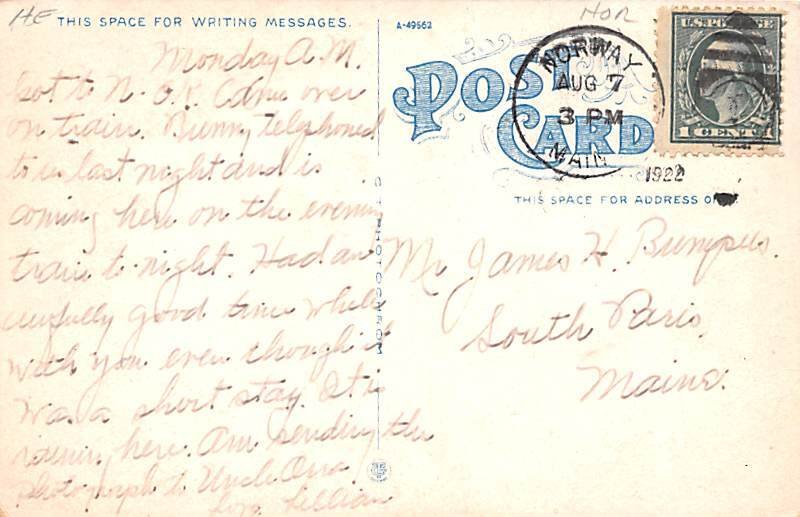 HE
THIS SPACE FOR WRITING MESSAGES.
A-49562
NOR
Monday A.M.
Got to N. O. P. Came over
on train. Bunny telephoned
to us last night and is
coming here on the evening
train to-night. Had an
awfully good time while
with you even though it
was a short stay. It is
raining here. Am sending the
photograph to Uncle Orra
Love Lillian
C.T. PHOTOCHROM
POST
CARD
NORWAY
AUG 7
3 PM
MAIN
1922
U.S. POSTAGE
1 CENT 1
THIS SPACE FOR ADDRESS
Mr James H. Bumpus.
South Paris,
Maine.